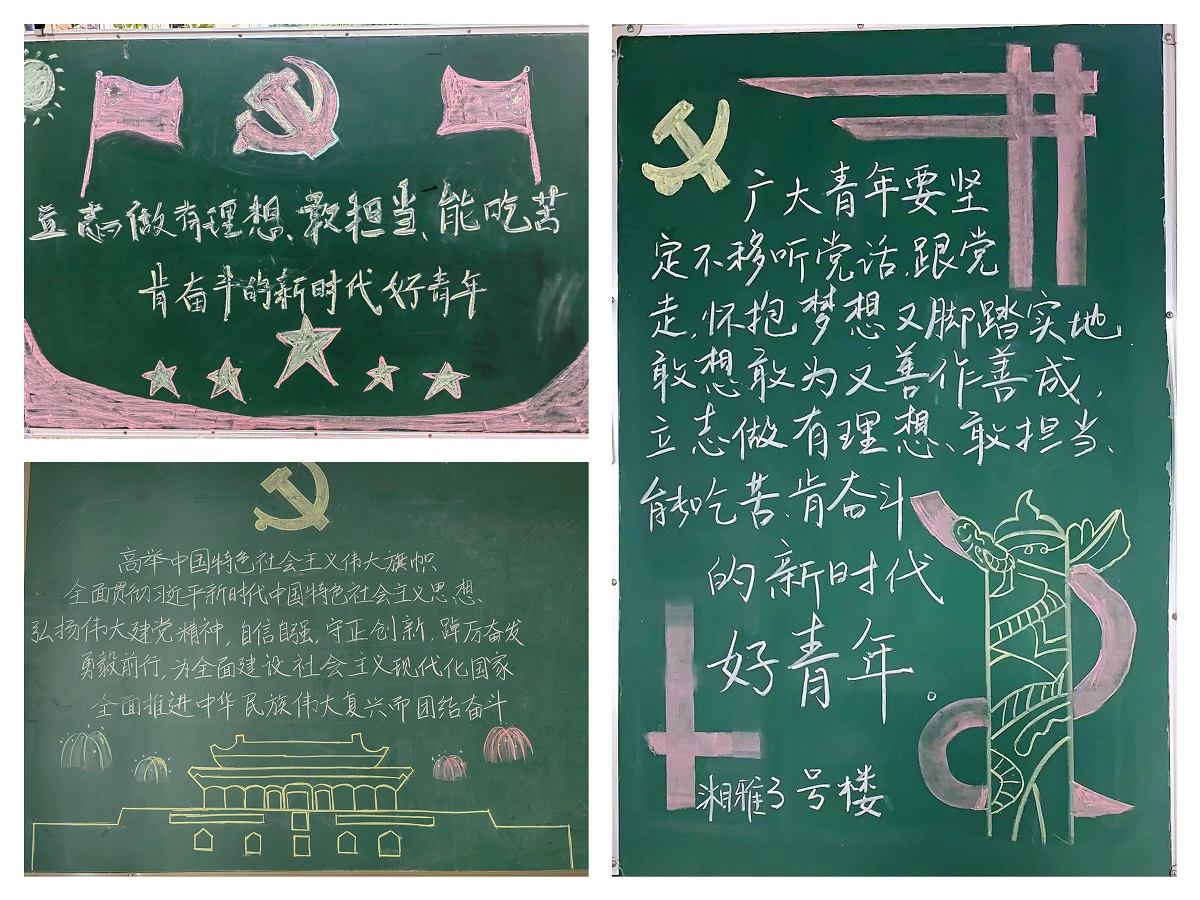 立志做有理想、敢担当、能吃苦
肯奋斗的新时代好青年
高举中国特色社会主义伟大旗帜
全面贯彻习近平新时代中国特色社会主义思想、
弘扬伟大建党精神，自信自强，守正创新，踔厉奋发
勇毅前行，为全面建设社会主义现代化国家
全面推进中华民族伟大复兴而团结奋斗
广大青年要坚
定不移听党话，跟党
走，怀抱梦想又脚踏实地
敢想敢为又善作善成，
立志做有理想、敢担当、
能吃苦、肯奋斗
的新时代
好青年。
湘雅3号楼